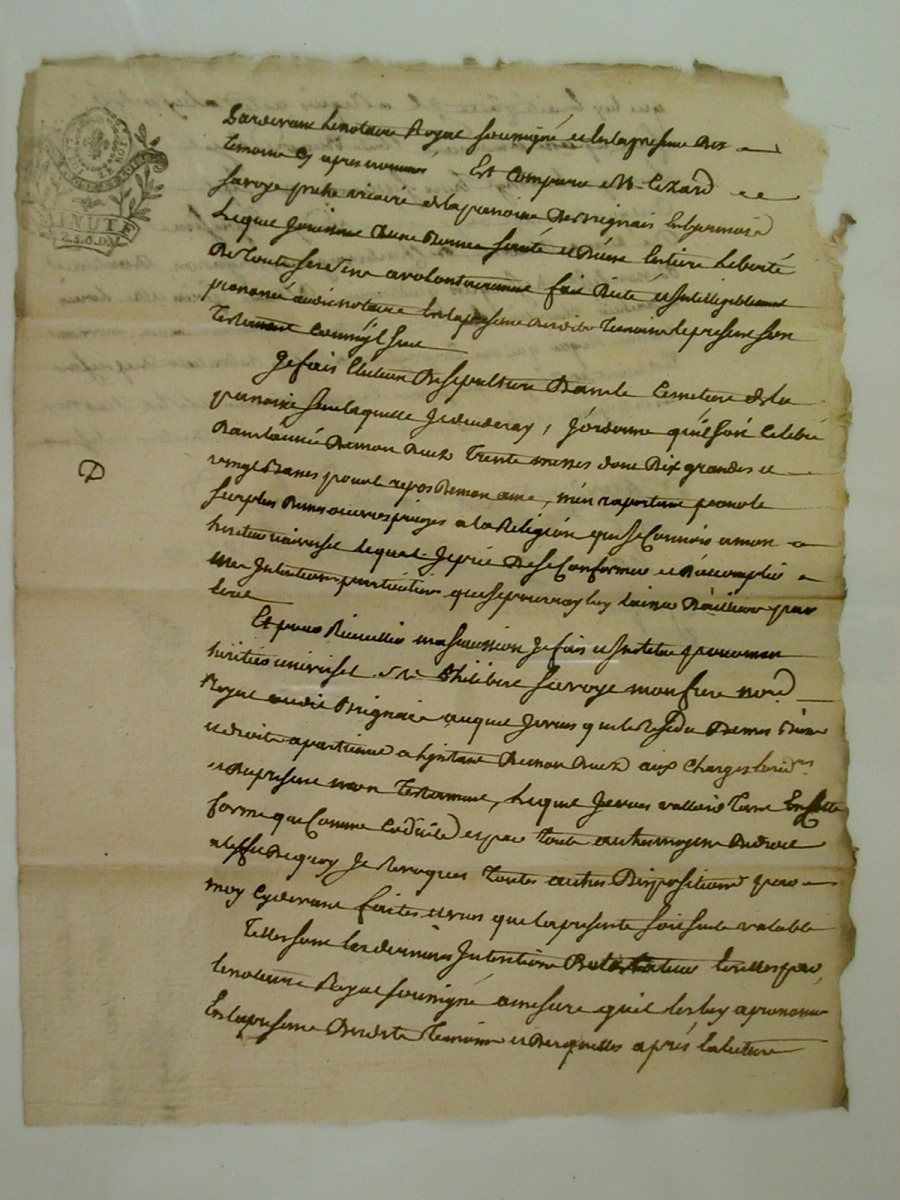 MINUTE
2. S. 6 D.
Pardevant le notaire Royal soussigné et en la presence des
temoins cy apres nommés Est comparu Mr Cezard
Savoye prêtre vicaire de la paroisse de Brignais en Lyonnois
lequel jouissant d'une bonne santé et d'une entiere liberté
de tous ses sens a volontairement fait dicté et intelligiblement
prononcé audit notaire en la presence desdits temoins le present son
testament comm'yl suit
Je fais election de sepulture dans le cemetiere de la
paroisse sur laquelle je decederay, j'ordonne qu'il soit celebré
dans l'année de mon decez trente messes dont dix grandes et
vingt basses pour le repos de mon ame, m'en raportant pour le
surplus des oeuvres pieuses a la Religion que je connois a mon
heritier universel lequel je prie de se conformer et d'accomplir
mes intentions particulieres que je pourray luy laisser d'ailleurs par
ecrit
Et pour recueillir ma succession je fais et institue pour mon
heritier universel Sr Philibert Savoye mon frere nore
Royal audit Brignais auquel je veus que le residu de mes biens
et droits apartienne a l'instant de mon decez aux charges
et du present mon testament, lequel je veus valloir tant en cette
forme que comme codicile et par tout autre moyen de droit
a l'effet de quoy je revoques toutes autres dispositions par
moy cydevant faites et veus que la presente soit seule valable
Telles sont les dernieres intentions du testateur ecrittes par
le notaire Royal soussigné a mesure qu'il les luy a prononcé
en la presence desdits temoins et desquelles après lecture
D